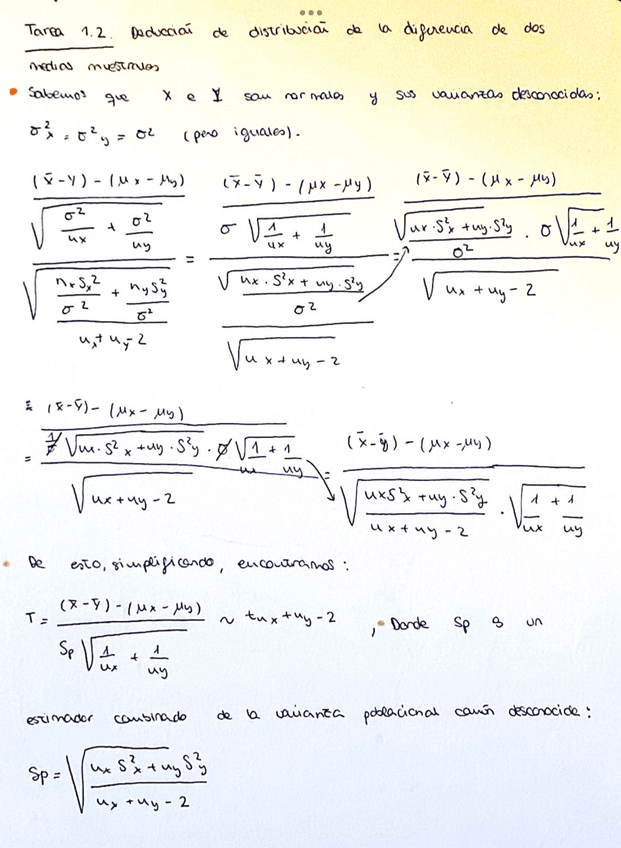 Tarea 1.2. Deducción de distribución de la diferencia de dos
medias muestrales
• Sabemos que X e Y son normales y sus varianzas desconocidas:
σ²x = σ²y = σ² (pero iguales).
(x̄-y) - (μx - μy) / √(σ²/nx + σ²/ny) / √((nxSx²/σ² + nySy²/σ²) / (nx+ny-2)) = (x̄-ȳ) - (μx - μy) / σ√(1/nx + 1/ny) / (√(nx·S²x + ny·S²y / σ²) / √(nx+ny-2)) = (x̄-ȳ) - (μx - μy) / (√(nx·S²x + ny·S²y / σ²) · σ√(1/nx + 1/ny) / √(nx+ny-2))
= (x̄-ȳ) - (μx - μy) / (1/σ √(n·S²x + ny·S²y) · σ√(1/n + 1/ny) / √(nx+ny-2)) = (x̄-ȳ) - (μx - μy) / (√(nxS²x + ny·S²y / nx+ny-2) · √(1/nx + 1/ny))
• De esto, simplificando, encontramos:
T = (x̄-ȳ) - (μx - μy) / Sp√(1/nx + 1/ny) ~ tnx+ny-2 , • Donde Sp es un
estimador combinado de la varianza poblacional común desconocida:
Sp = √(nxS²x + nyS²y / nx+ny-2)